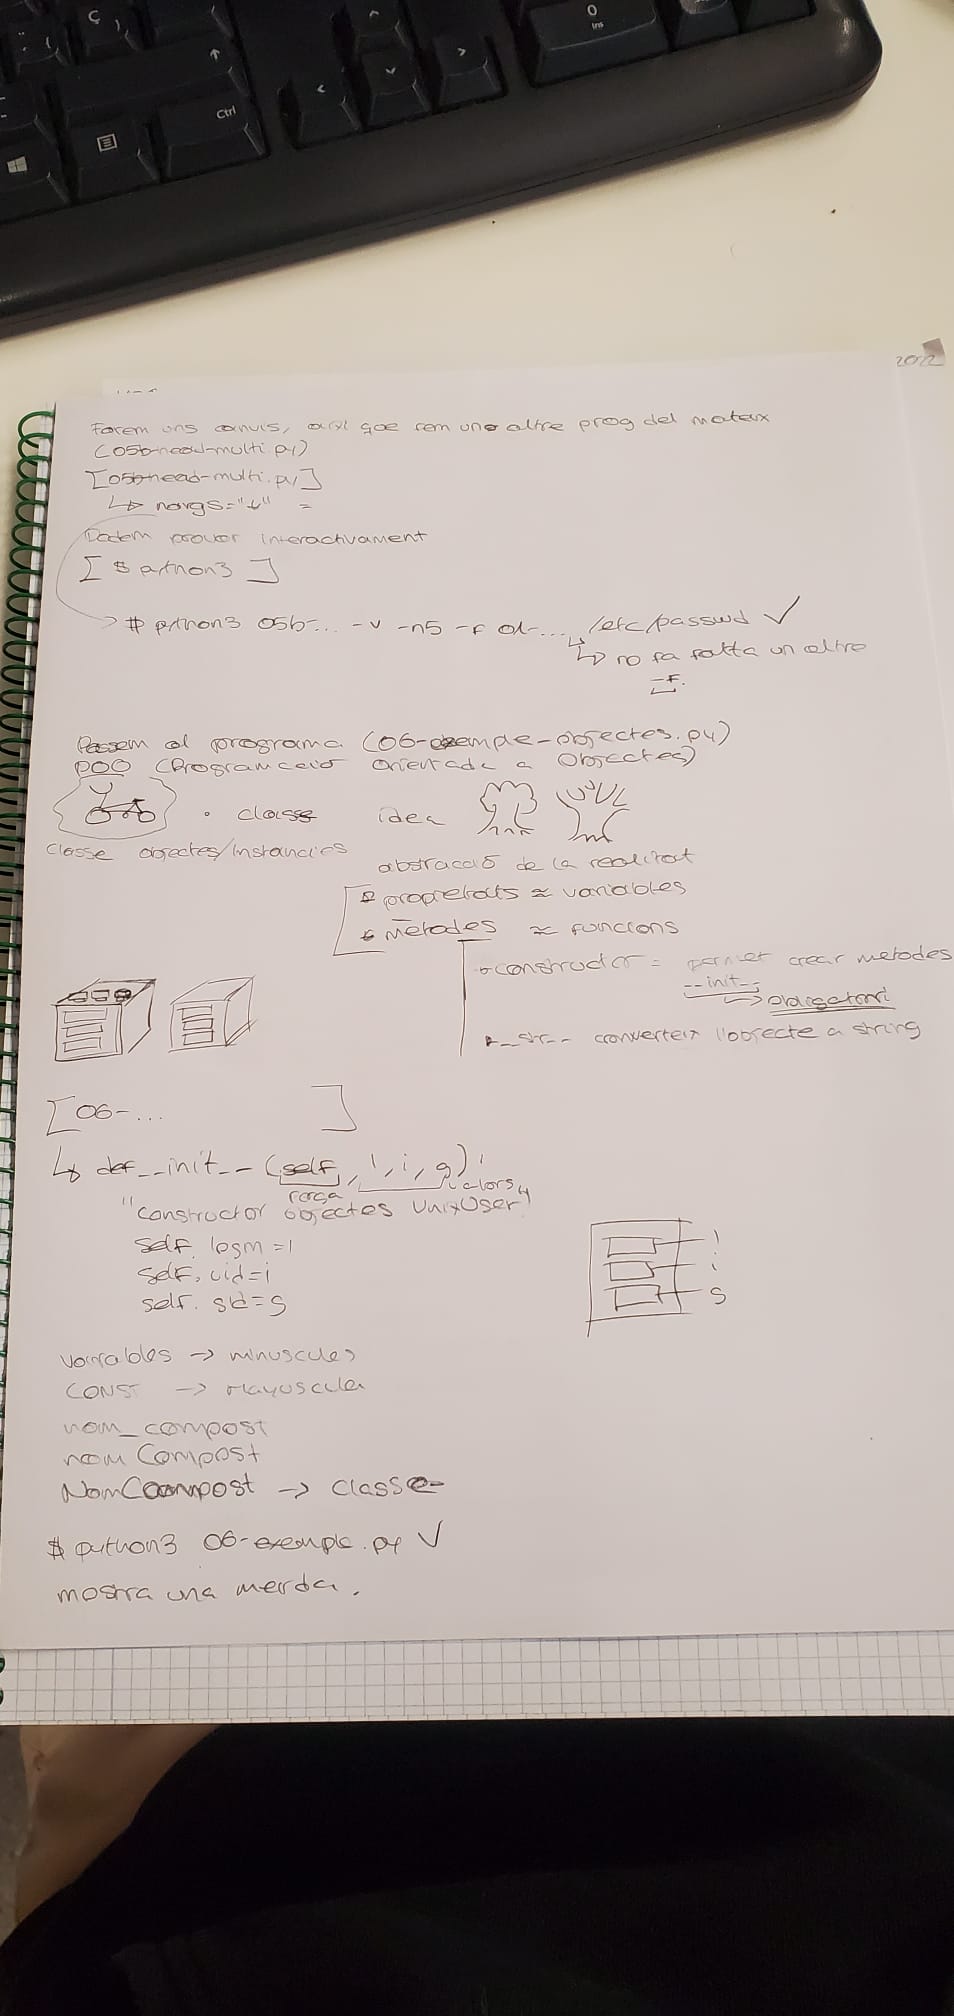 ç
Ctrl
0
Ins
2022
Farem uns canvis, així que fem un altre prog del mateix
(05b-head-multi.py)
[05b-head-multi.py]
↳ nargs="*"
Podem provar interactivament
[ $ python3 ]
→ # python3 05b-... -v -n5 -f 01-... /etc/passwd ✓
↳ no fa falta un altre
-f.
Passem al programa (06-exemple-objectes.py)
POO (Programació Orientada a Objectes)
• classe idea
classe objectes/instancies
abstracció de la realitat
propietats ≈ variables
mètodes ≈ funcions
constructor = permet crear metodes
__init__
→ obligatori
__str__ converteix l'objecte a string
[06-... ]
↳ def __init__ (self, l, i, g):
valors
"Constructor objectes UnixUser"
self. login = l
self. uid=i
self. gid=g
l
i
g
variables → minuscules
CONST → Mayuscules
nom_compost
nomCompost
NomCompost → classe
$ python3 06-exemple.py ✓
mostra una merda.